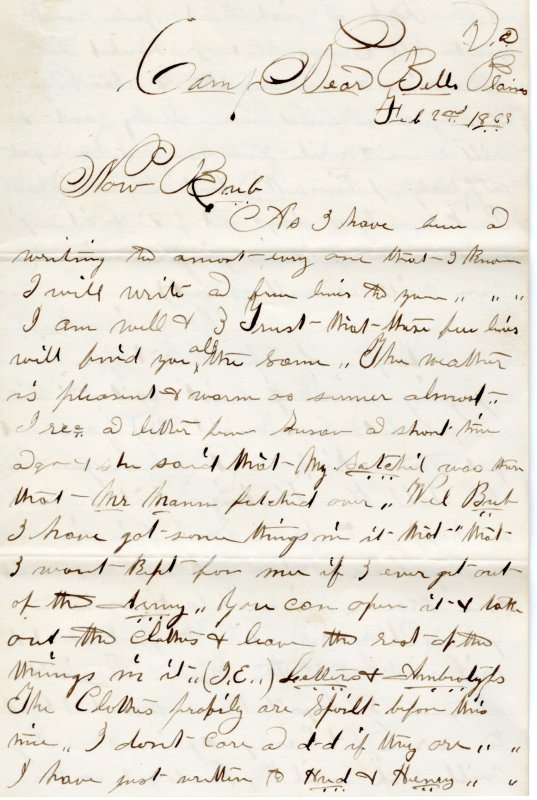 Va
Camp Near Bells Plains
Feb 2nd 1863
Now Bub
As I have bin a
writing to amost evry one that I know
I will write a few lines to you " " "
I am well & I Trust that these few lines
will find you all the same " The weather
is pleasent & warm as sumer almost "
I rec a letter from Susan a short time
ago & she said that My satchil was there
that Mr Mann fetched over " Wel Bub
I have got some things in it that " that
I want kept for me if I ever git out
of the Army " You can open it & take
out the clothes & leave the rest of the
things in it " (I.E. ") Letters & Ambrotyps
The Clothes probily are spoilt before this
time " I dont care a d-d if they are " "
I have just written to & Henry " "